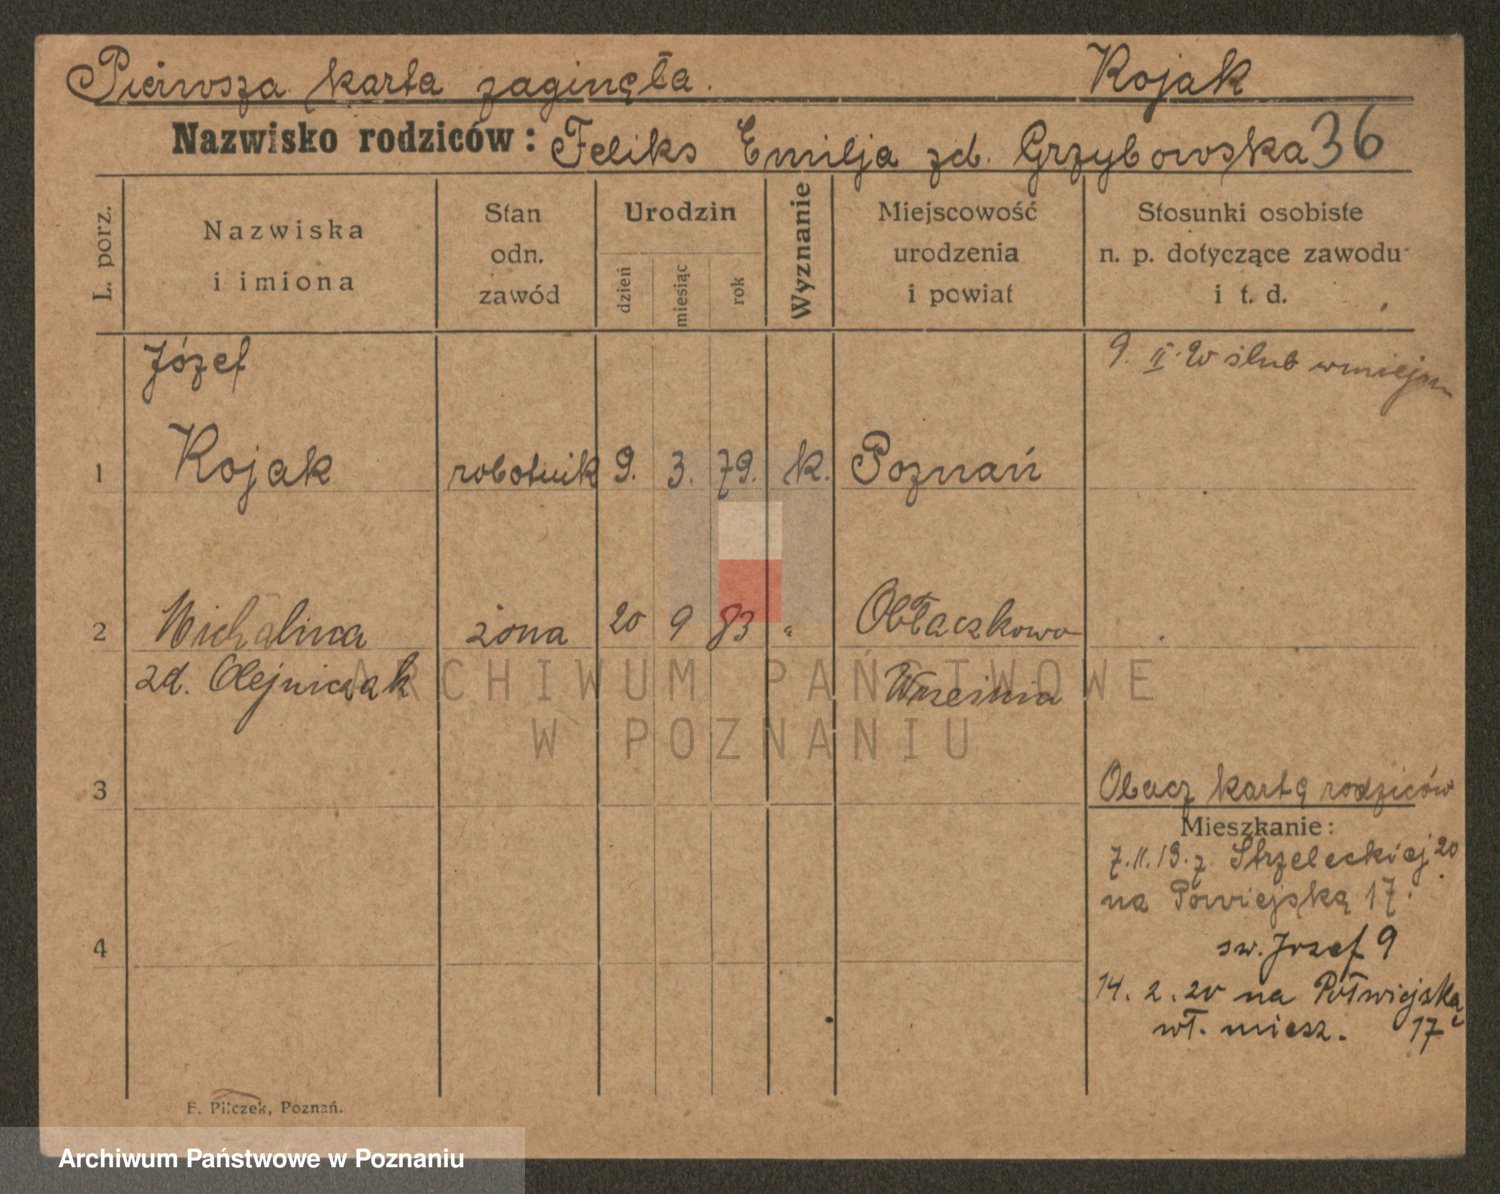 Pierwsza karta zaginęła. Kojak
Nazwisko rodziców: Feliks Emilja zd. Grzybowska 36
L. porz.
Nazwiska
i imiona
Stan
odn.
zawód
Urodzin
dzień
miesiąc
rok
Wyznanie
Miejscowość
urodzenia
i powiat
Stosunki osobiste
n. p. dotyczące zawodu
i t. d.
Józef
9. II. 20 ślub w miejscu
1 Kojak robotnik 9. 3. 79. k. Poznań
2 Michalina żona 20 9 83 " Obłaczkowo
zd. Olejniczak Września
ARCHIWUM PAŃSTWOWE
W POZNANIU
3 Obacz kartę rodziców
Mieszkanie:
7.11.19. z Strzeleckiej 20
na Powiejską 17.
4 św. Józef 9
14. 2. 20 na Półwiejską
wł. miesz. 17
F. Pilczek, Poznań.
Archiwum Państwowe w Poznaniu